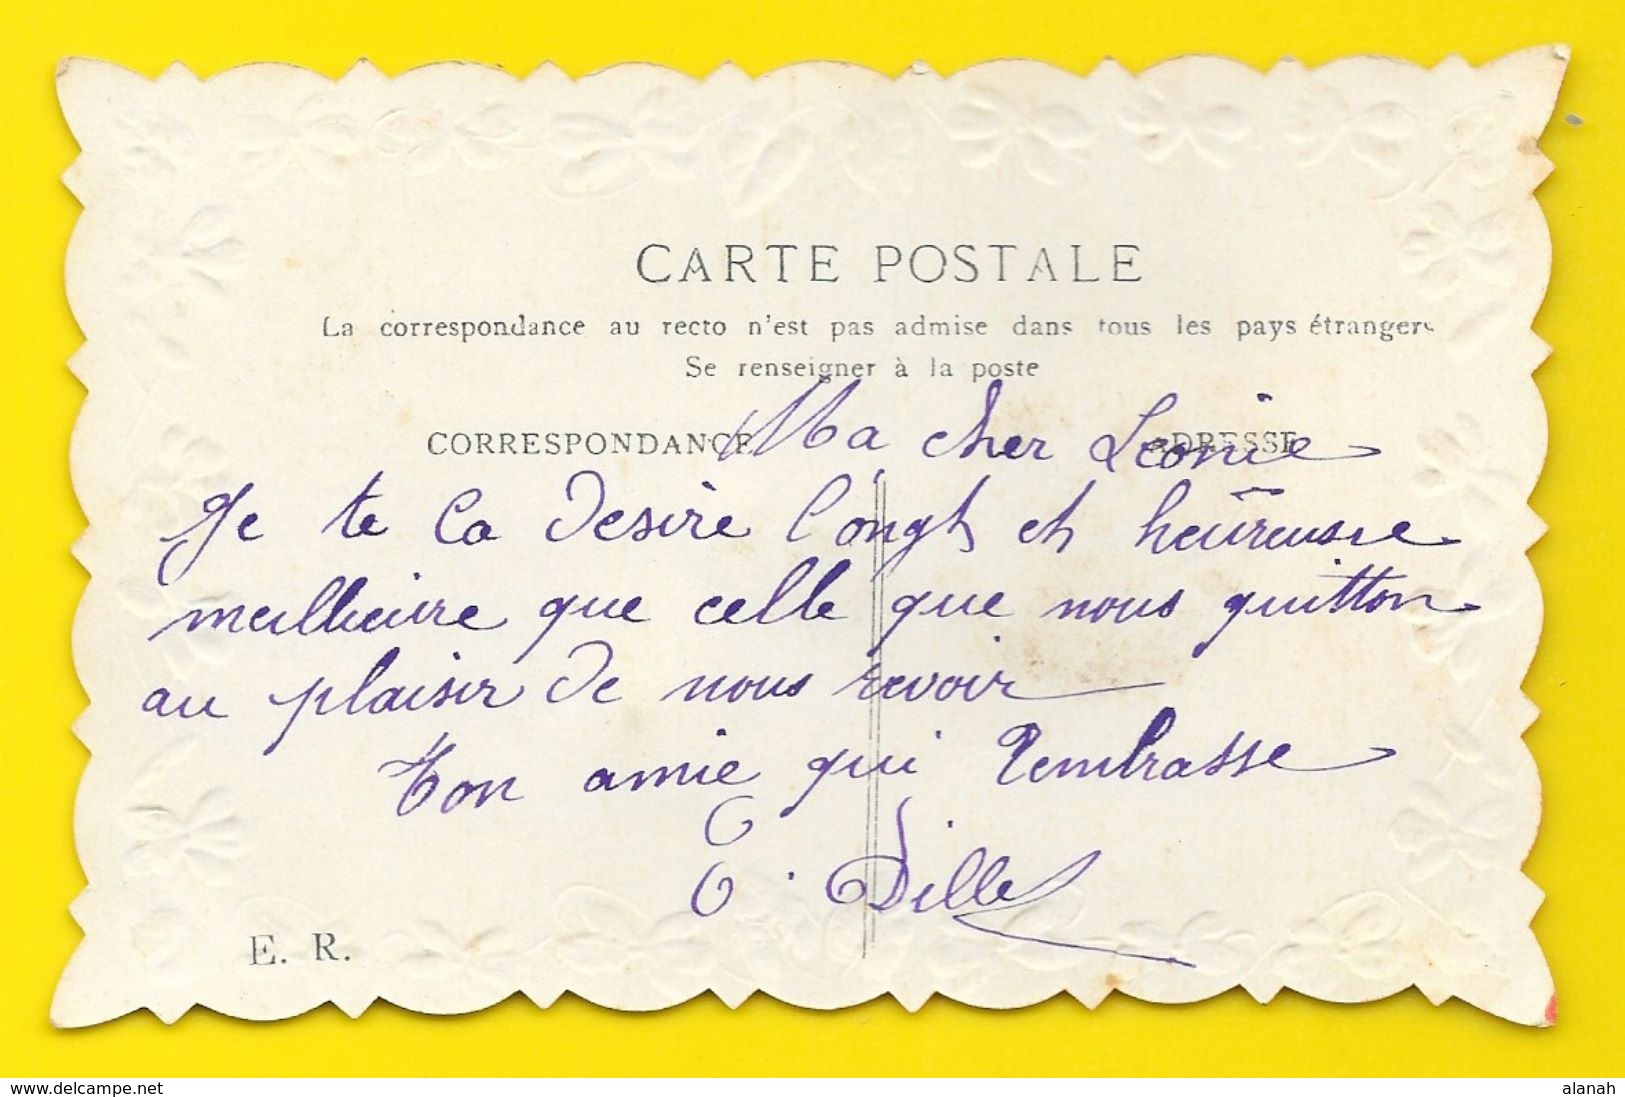 CARTE POSTALE
La correspondance au recto n'est pas admise dans tous les pays étrangers
Se renseigner à la poste
CORRESPONDANCE
ADRESSE
Ma cher Léonie
Je te la desire longh et heûreusse
meillieure que celle que nous quitton
au plaisir de nous revoir
Ton amie qui t'embrasse
E. Dille
E. R.
www.delcampe.net
alanah